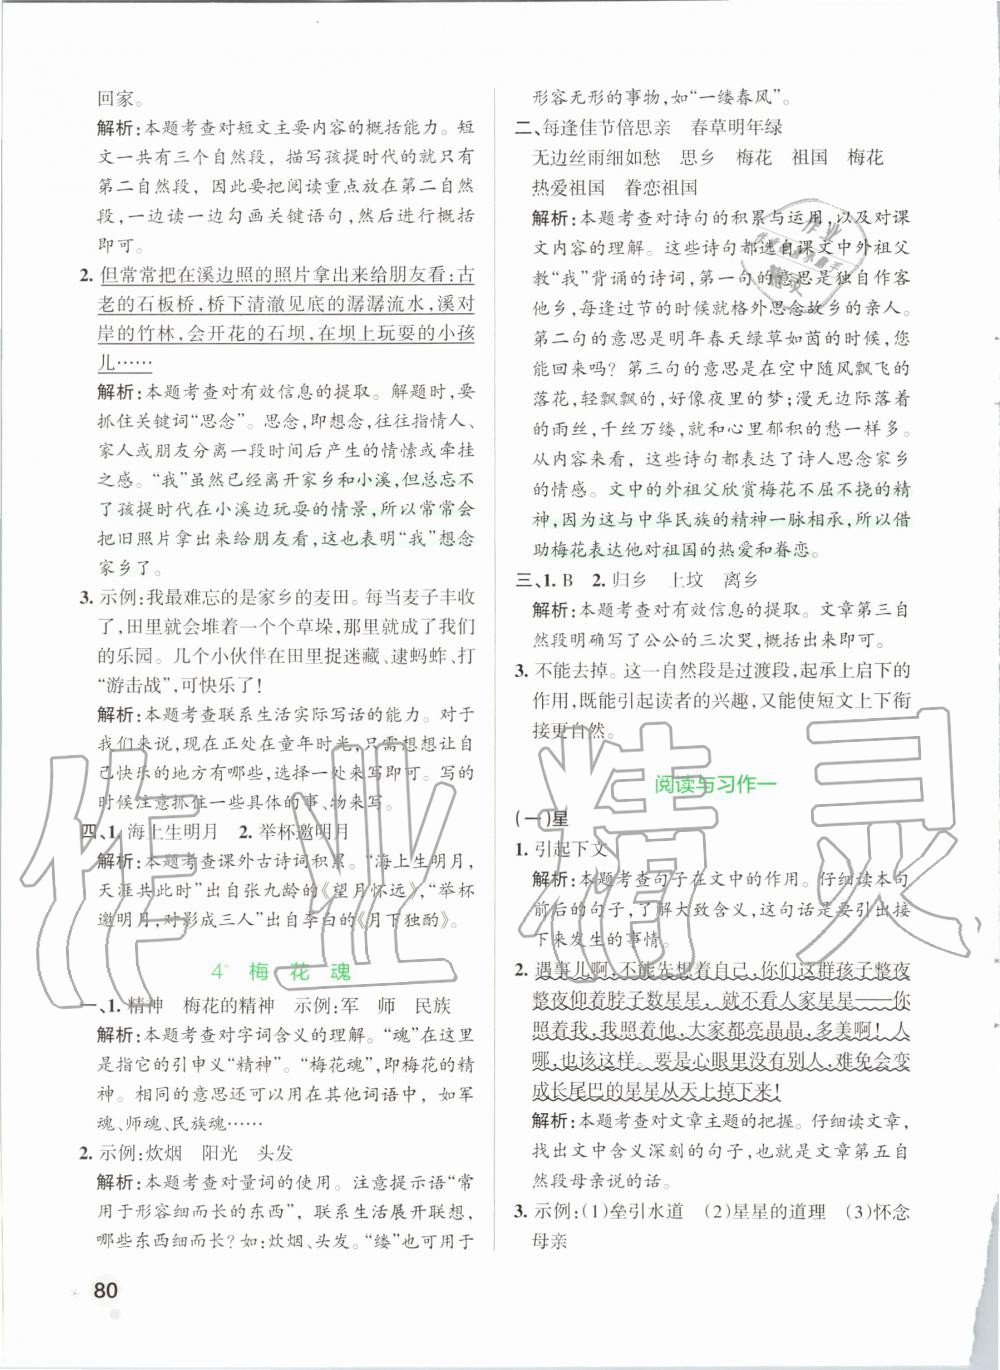 回家。
解析:本题考查对短文主要内容的概括能力。短
文一共有三个自然段，描写孩提时代的就只有
第二自然段，因此要把阅读重点放在第二自然
段，一边读一边勾画关键语句，然后进行概括
即可。
2. 但常常把在溪边照的照片拿出来给朋友看:古
老的石板桥，桥下清澈见底的潺潺流水，溪对
岸的竹林，会开花的石坝，在坝上玩耍的小孩
儿……
解析:本题考查对有效信息的提取。解题时，要
抓住关键词“思念”。思念，即想念，往往指情人、
家人或朋友分离一段时间后产生的情愫或牵挂
之感。“我”虽然已经离开家乡和小溪，但总忘不
了孩提时代在小溪边玩耍的情景，所以常常会
把旧照片拿出来给朋友看，这也表明“我”想念
家乡了。
3. 示例:我最难忘的是家乡的麦田。每当麦子丰收
了，田里就会堆着一个个草垛，那就成了我们
的乐园。几个小伙伴在田里捉迷藏、逮蚂蚱、打
“游击战”，可快乐了!
解析:本题考查联系生活实际写话的能力。对于
我们来说，现在正处在童年时光，只需想想让自
己快乐的地方有哪些，选择一处来写即可。写的
时候注意抓住一些具体的事、物来写。
四、1. 海上生明月 2. 举杯邀明月
解析:本题考查课外古诗词积累。“海上生明月，
天涯共此时”出自张九龄的《望月怀远》，“举杯
邀明月，对影成三人”出自李白的《月下独酌》。
4* 梅 花 魂
一、1. 精神 梅花的精神 示例:军 师 民族
解析:本题考查对字词含义的理解。“魂”在这里
是指它的引申义“精神”。“梅花魂”，即梅花的精
神。同样的意思还可以用在其他词语中，如军
魂、师魂、民族魂……
2. 示例:炊烟 阳光 头发
解析:本题考查对量词的使用。注意提示语“常
用于形容细而长的东西”，联系生活展开联想，
哪些东西细而长?如:炊烟、头发。“缕”也可用于
80
形容无形的事物，如“一缕春风”。
二、每逢佳节倍思亲 春草明年绿
无边丝雨细如愁 思乡 梅花 祖国 梅花
热爱祖国 眷恋祖国
解析:本题考查对诗句的积累与运用，以及对课
文内容的理解。这些诗句都选自课文中外祖父
教“我”背诵的诗词，第一句的意思是独自作客
他乡，每逢过节的时候就格外思念故乡的亲人。
第二句的意思是明年春天绿草如茵的时候，您
能回来吗?第三句的意思是在空中随风飘飞的
落花，轻飘飘的，好像夜里的梦;漫无边际落着
的雨丝，千丝万缕，就和心里郁积的愁一样多。
从内容来看，这些诗句都表达了诗人思念家乡
的感情。文中的外祖父欣赏梅花不屈不挠的精
神，因为这与中华民族的精神一脉相承，所以借
助梅花表达他对祖国的热爱和眷恋。
三、1. B 2. 归乡 上坟 离乡
解析:本题考查对有效信息的提取。文章第三自
然段明确写了公公的三次哭，概括出来即可。
3. 不能去掉。这一自然段是过渡段，起承上启下的
作用，既能引起读者的兴趣，又能使短文上下衔
接更自然。
阅读与习作一
(一)星
1. 引起下文
解析:本题考查句子在文中的作用。仔细读本句
前后的句子，了解大致含义，这句话是要引出接
下来发生的事情。
2. 遇事儿啊，不能光想着自己，你们这群孩子整夜
整夜仰着脖子数星星，就不看人家星星——你
照着我，我照着他，大家都亮晶晶，多美啊!人
哪，也该这样。要是心眼里没有别人，难免会变
成长尾巴的星星从天上掉下来!
解析:本题考查对文章主题的把握。仔细读文章，
找出文中含义深刻的句子，也就是文章第五自
然段母亲说的话。
3. 示例:(1)垒引水道 (2)星星的道理 (3)怀念
母亲
作业精灵